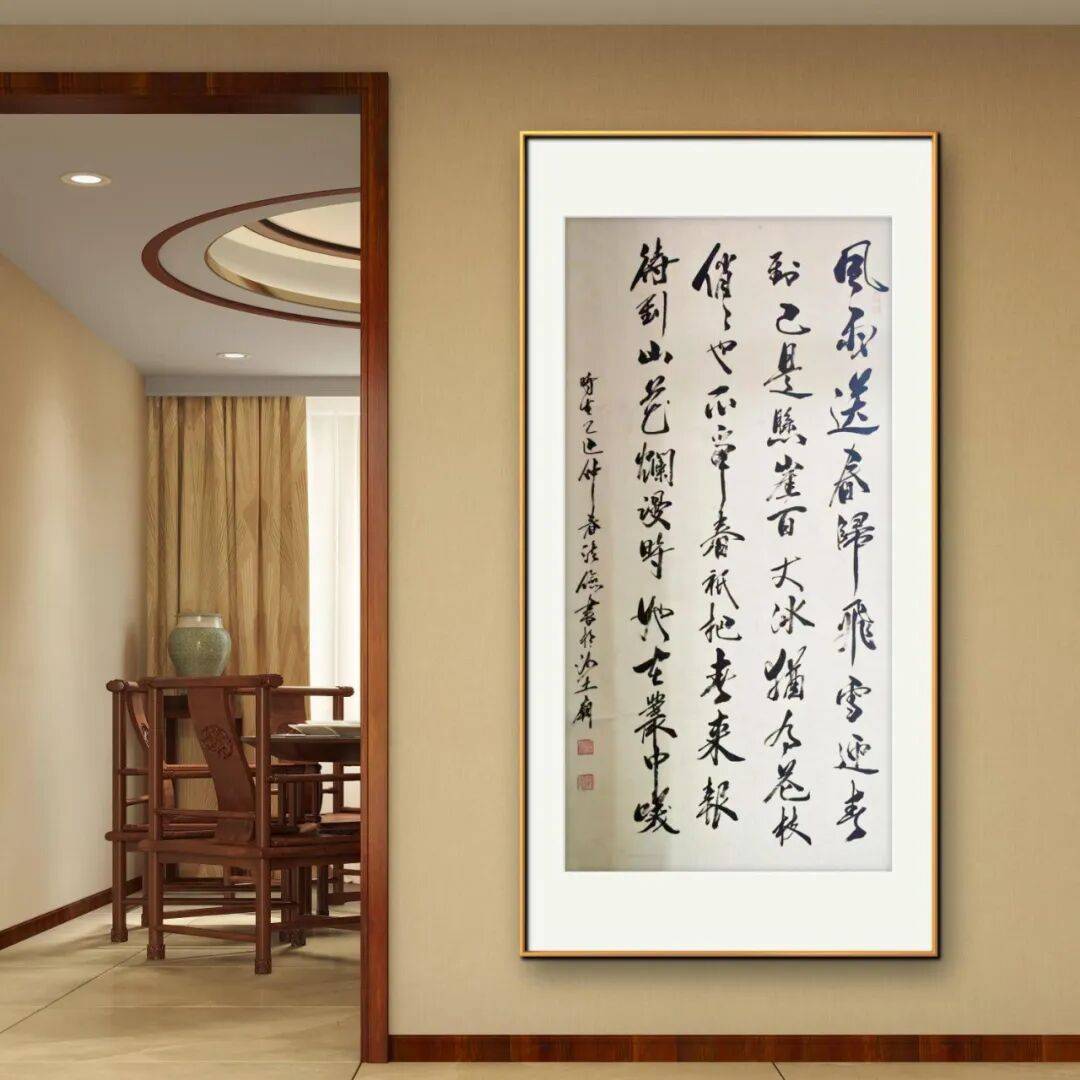 風雨送春歸飛雪迎春
到已是懸崖百丈冰猶有花枝
俏〻也不爭春祇把春來報
待到山花爛漫時她在叢中咲
時在乙巳仲春法儉書於